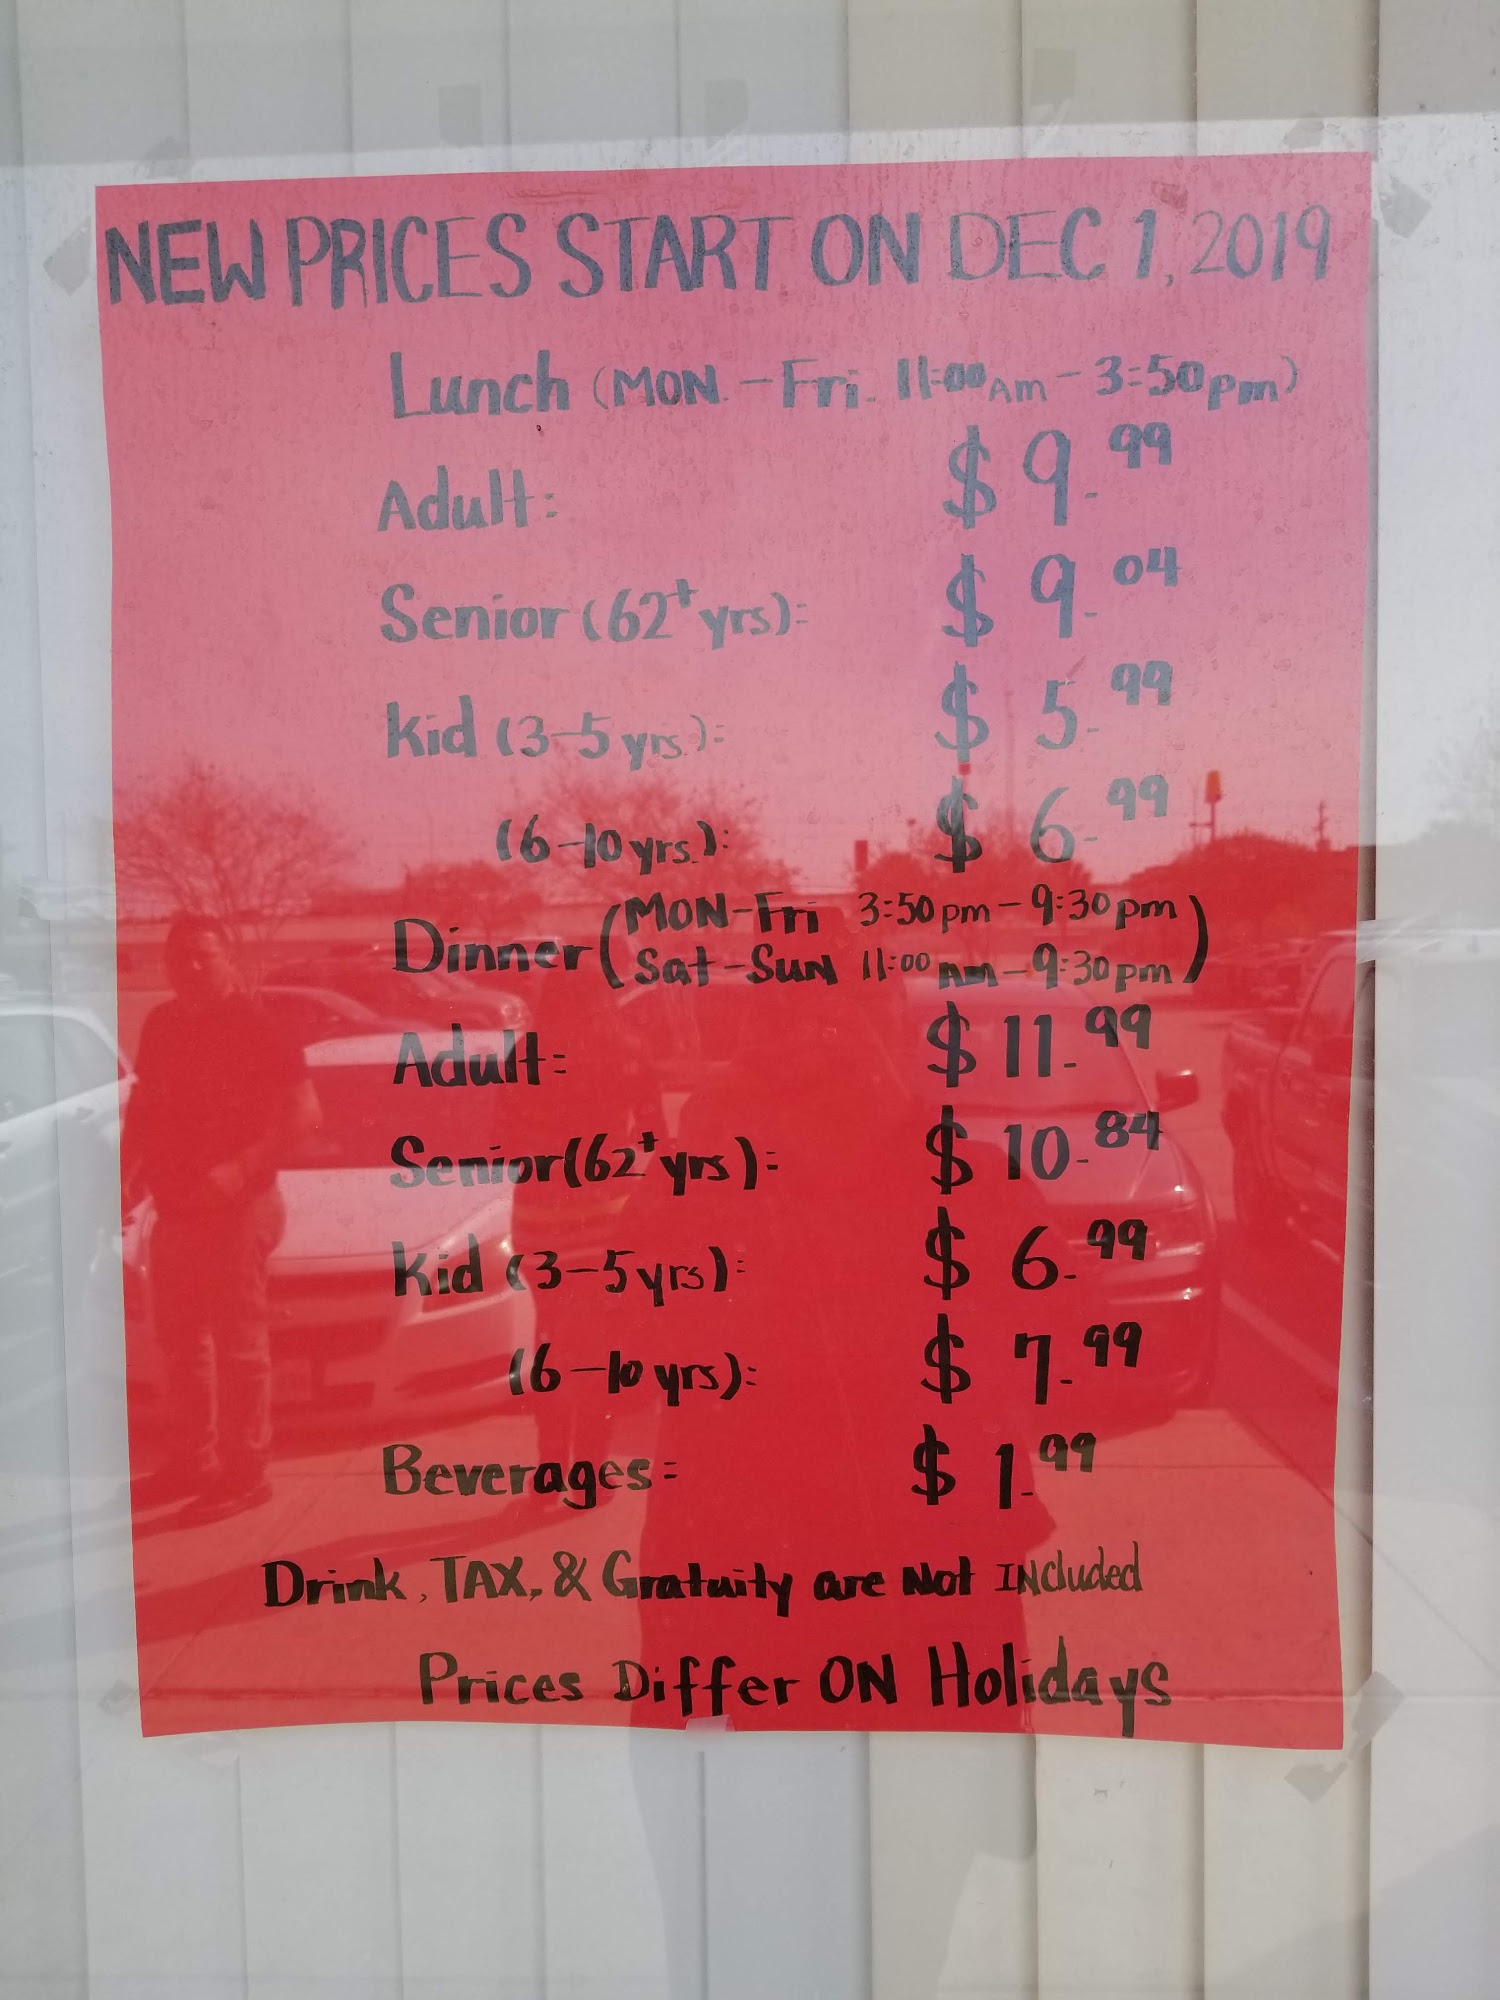 NEW PRICES START ON DEC 1, 2019
Lunch (MON. - Fri. 11:00 Am - 3:50 pm)
Adult: $ 9.99
Senior (62+ yrs): $ 9.04
Kid (3-5 yrs.): $ 5.99
(6-10 yrs.): $ 6.99
Dinner (MON-Fri 3:50 pm - 9:30 pm
Sat-SUN 11:00 AM - 9:30 pm)
Adult: $ 11.99
Senior (62+ yrs): $ 10.84
Kid (3-5 yrs): $ 6.99
(6-10 yrs): $ 7.99
Beverages: $ 1.99
Drink, TAX, & Gratuity are Not INCluded
Prices Differ ON Holidays